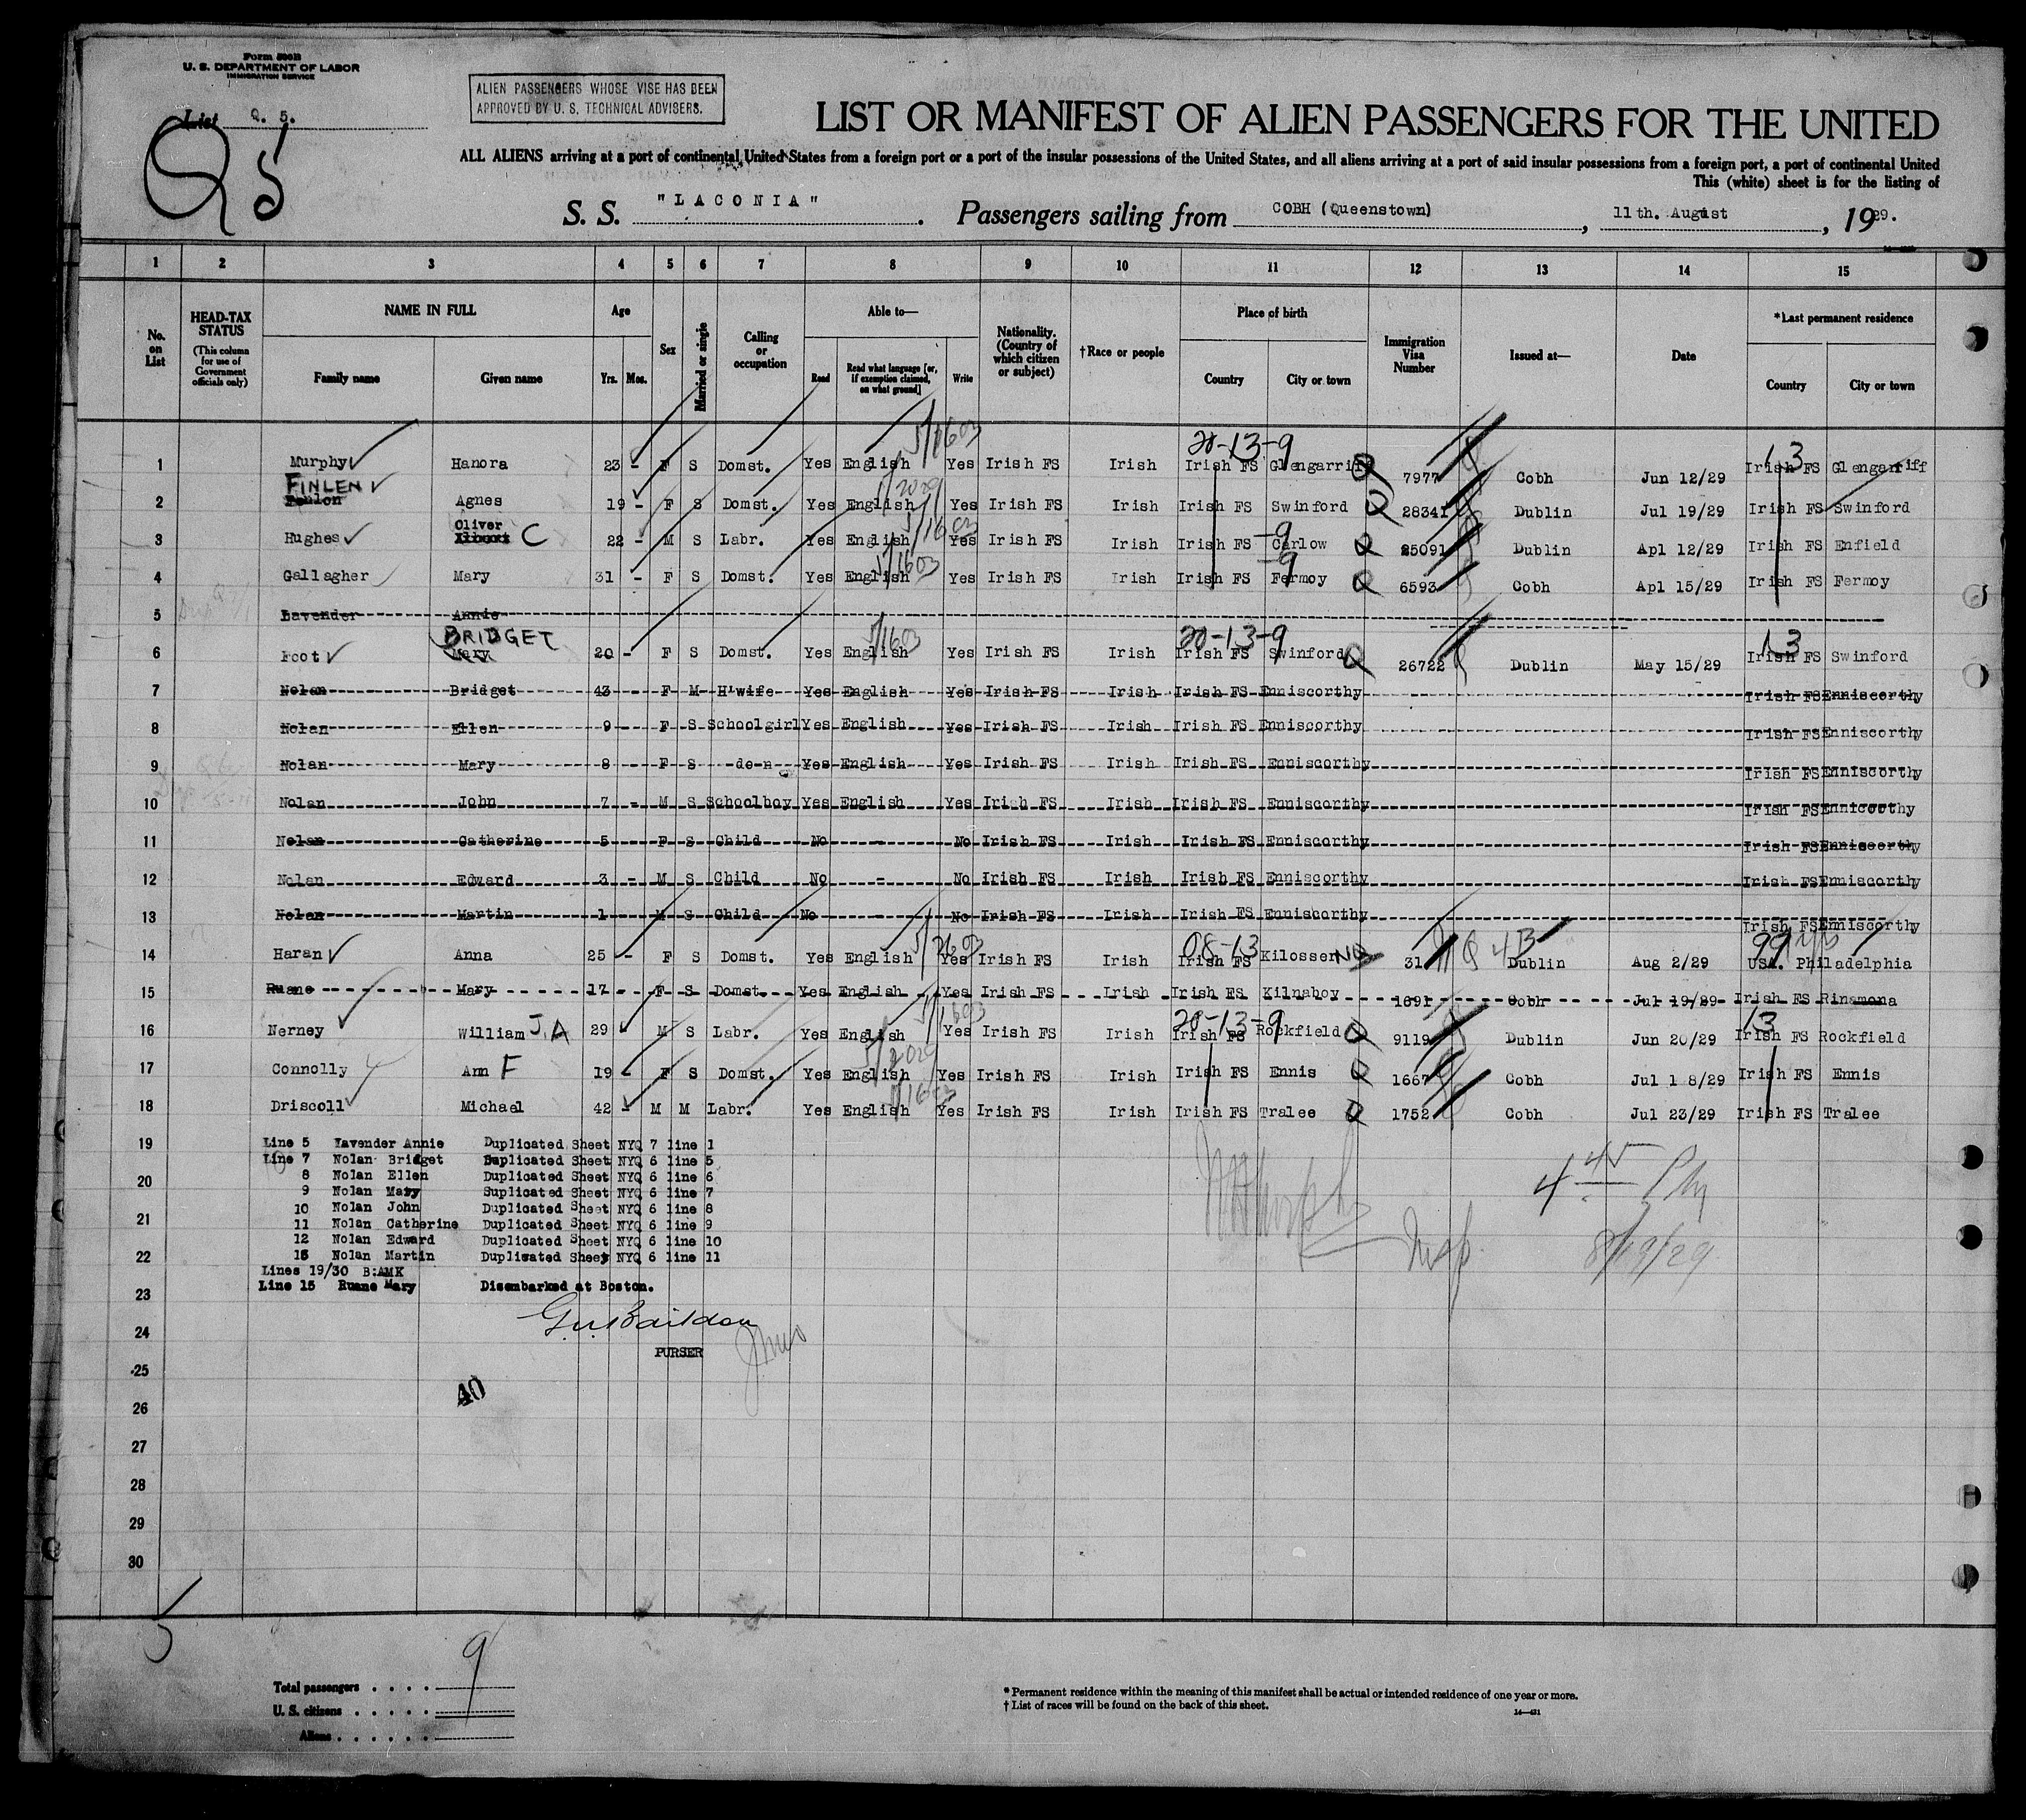 Form 500B
U. S. DEPARTMENT OF LABOR
IMMIGRATION SERVICE
List Q. 5.
Q5
ALIEN PASSENGERS WHOSE VISE HAS BEEN
APPROVED BY U. S. TECHNICAL ADVISERS.
LIST OR MANIFEST OF ALIEN PASSENGERS FOR THE UNITED
ALL ALIENS arriving at a port of continental United States from a foreign port or a port of the insular possessions of the United States, and all aliens arriving at a port of said insular possessions from a foreign port, a port of continental United
This (white) sheet is for the listing of
S. S. "LACONIA". Passengers sailing from COBH (Queenstown), 11th. August, 1929.
1 2 3 4 5 6 7 8 9 10 11 12 13 14 15
No. on List
HEAD-TAX STATUS (This column for use of Government officials only)
NAME IN FULL
Family name Given name
Age
Yrs. Mos.
Sex
Married or single
Calling or occupation
Able to—
Read Read what language [or, if exemption claimed, on what ground] Write
Nationality. (Country of which citizen or subject)
†Race or people
Place of birth
Country City or town
Immigration Visa Number
Issued at—
Date
*Last permanent residence
Country City or town
5/1603 20-13-9 13
1 Murphy Hanora 23 - F S Domst. Yes English Yes Irish FS Irish Irish FS Glengarriff Q 7977 Cobh Jun 12/29 Irish FS Glengarriff
FINLEN 5/2029
2 Agnes 19 - F S Domst. Yes English Yes Irish FS Irish Irish FS Swinford Q 28341 Dublin Jul 19/29 Irish FS Swinford
Oliver 5/1603 -9
3 Hughes C 22 - M S Labr. Yes English Yes Irish FS Irish Irish FS Carlow Q 25091 Dublin Apl 12/29 Irish FS Enfield
5/1603 -9
4 Gallagher Mary 31 - F S Domst. Yes English Yes Irish FS Irish Irish FS Fermoy Q 6593 Cobh Apl 15/29 Irish FS Fermoy
5 Lavender Annie
BRIDGET 5/1603 20-13-9 13
6 Foot Mary 20 - F S Domst. Yes English Yes Irish FS Irish Irish FS Swinford Q 26722 Dublin May 15/29 Irish FS Swinford
7 Nolan Bridget 43 - F M H'wife Yes English Yes Irish FS Irish Irish FS Enniscorthy Irish FS Enniscorthy
8 Nolan Ellen 9 - F S Schoolgirl Yes English Yes Irish FS Irish Irish FS Enniscorthy Irish FS Enniscorthy
9 Nolan Mary 8 - F S -do-n Yes English Yes Irish FS Irish Irish FS Enniscorthy Irish FS Enniscorthy
10 Nolan John 7 - M S Schoolboy Yes English Yes Irish FS Irish Irish FS Enniscorthy Irish FS Ennicorthy
11 Nolan Catherine 5 - F S Child No - No Irish FS Irish Irish FS Enniscorthy Irish FS Enniscorthy
12 Nolan Edward 3 - M S Child No - No Irish FS Irish Irish FS Enniscorthy Irish FS Enniscorthy
13 Nolan Martin 1 - M S Child No - No Irish FS Irish Irish FS Enniscorthy Irish FS Enniscorthy
08-13 4B 99
14 Haran Anna 25 - F S Domst. Yes English Yes Irish FS Irish Irish FS Kilossen 31 Dublin Aug 2/29 USA. Philadelphia
15 Ruane Mary 17 - F S Domst. Yes English Yes Irish FS Irish Irish FS Kilnaboy 1691 Cobh Jul 19/29 Irish FS Rinamona
5/1603 20-13-9 13
16 Nerney William J.A 29 M S Labr. Yes English Yes Irish FS Irish Irish FS Rockfield Q 9119 Dublin Jun 20/29 Irish FS Rockfield
5/2029
17 Connolly Ann F 19 - F S Domst. Yes English Yes Irish FS Irish Irish FS Ennis Q 1667 Cobh Jul 1 8/29 Irish FS Ennis
18 Driscoll Michael 42 - M M Labr. Yes English Yes Irish FS Irish Irish FS Tralee Q 1752 Cobh Jul 23/29 Irish FS Tralee
19 Line 5 Lavender Annie Duplicated Sheet NYQ 7 line 1
Line 7 Nolan Bridget Duplicated Sheet NYQ 6 line 5
20 8 Nolan Ellen Duplicated Sheet NYQ 6 line 6
9 Nolan Mary Suplicated Sheet NYQ 6 line 7
10 Nolan John Duplicated Sheet NYQ 6 line 8
21 11 Nolan Catherine Duplicated Sheet NYQ 6 line 9
12 Nolan Edward Duplicated Sheet NYQ 6 line 10
22 13 Nolan Martin Duplicated Sheet NYQ 6 line 11
Lines 19/30 BLAMK
Line 15 Ruane Mary Disembarked at Boston.
4 45 PM
Insp. 8/19/29
23
24
PURSER
25
40
26
27
28
29
30
Total passengers . . . . 9
U. S. citizens . . . . .
Aliens . . . . . .
* Permanent residence within the meaning of this manifest shall be actual or intended residence of one year or more.
† List of races will be found on the back of this sheet.
14—431